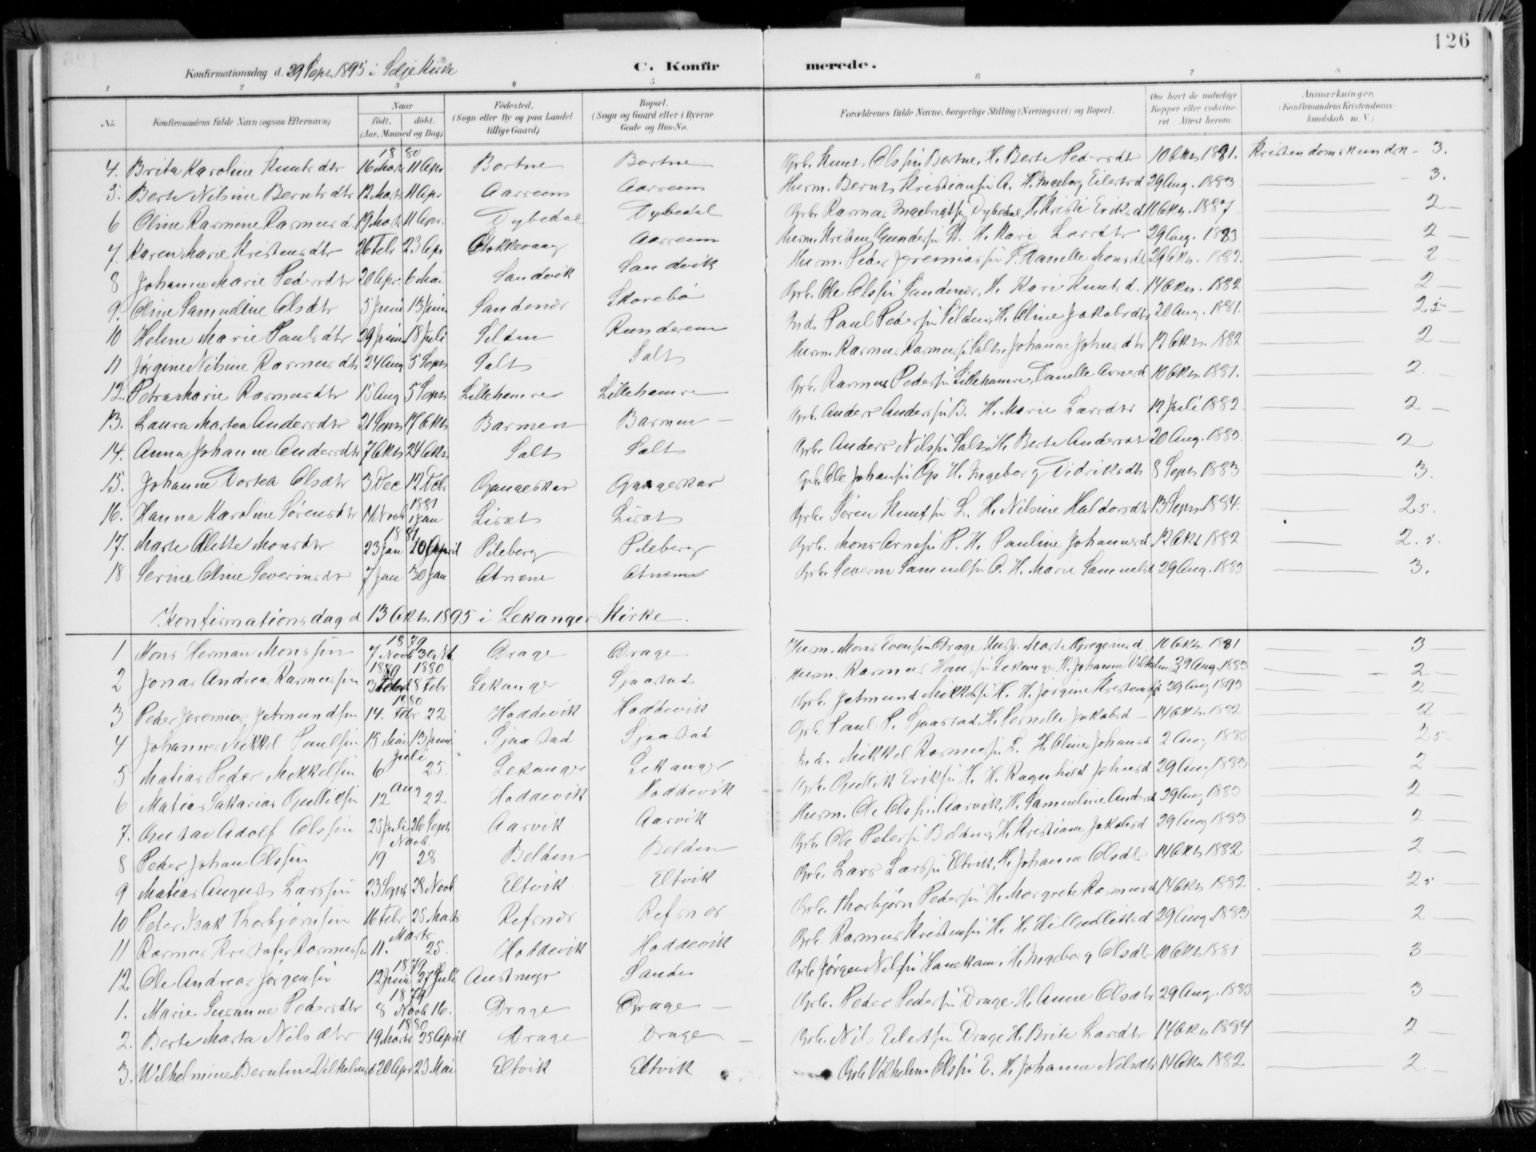 126
Konfirmationsdag d. 29 Septr. 1895 i Selje Kirke
C. Konfirmerede.
1 2 3 4 5 6 7 8
No.
Konfirmandens fulde Navn (ogsaa Efternavn)
Naar
født, døbt.
(Aar, Maaned og Dag)
Fødested.
(Sogn eller By og paa Landet tillige Gaard)
Bopæl.
(Sogn og Gaard eller i Byerne Gade og Hus-No.
Forældrenes fulde Navne, borgerlige Stilling (Næringsvei) og Bopæl.
Om havt de naturlige Kopper eller vaccineret Attest herom.
Anmærkninger.
(Konfirmandens Kristendomskundskab m. V.)
1880
4. Brita Karoline Knutsdtr 16 Marts 11 Apr. Bortne Bortne Gbr. Knut Olssøn Bortne, H. Berte Pedersdtr 10 Oktr. 1881. Kristendomskundsk - 3.
5. Berte Nilsine Berntsdtr 12 Marts 11 Apr. Aarreim Aarreim Husm. Bernt Kristiansøn A. H. Ingeborg Eilertsd 29 Aug. 1883 3.
6 Oline Rasmine Rasmusd 19 Marts 11 Apr. Dybedal Dybedal Gbr. Rasmus Ingebrigtsøn Dybedal, H. Kristi Eriksd 11 Oktr. 1887 2
7. Karen Marie Kristensdtr 26 Febr 23 Apr Aarreim Husm. Kristen Gundersøn H. Kari Larsdtr 29 Aug. 1883 2
8 Johanne Marie Pedersdtr 20 Apr. 6 Mai Sandvik Sandvik Husm. Peder Jeremiassøn Monsd 29 Oktr. 1882. 2
9. Oline Samueline Olsdtr 5 Juni 13 Juni Sandenær Skorebø Gbr. Ole Olssøn Sandenær, H. Kari Knutsd. 14 Oktr. 1882 2
10 Helene Marie Paulsdtr 29 Juni 18 Juli Silden Runderein Ind. Paul Pedersøn Silden, H. Oline Jakobsdtr 20 Aug. 1881. 2.5
11 Jørgine Nilsine Rasmusdtr 24 Aug 5 Septr Salt Salt Husm. Rasmus Rasmussøn Salt, Johanne Johnsdtr 12 Oktr. 1882 2
12. Petra Marie Rasmusdtr 15 Aug 5 Septr Lillehamre Lillehamre Gbr. Rasmus Pedersøn Lillehamre, 10 Oktr. 1881. 2.
13. Laura Marta Andersdtr 21 Septr 17 Oktr Barmen Barmen Gbr. Anders Anderssøn B. H. Marie Larsdtr 12 Juli 1882 2
14. Anna Johanne Andersdtr 7 Oktr 24 Oktr Salt Salt Gbr. Anders Nilssøn Salt, H. Berte Andersdtr 20 Aug. 1883 2
15. Johanne Dortea Olsdtr 3 Dec 12 Febr Gangeskar Gangeskar Gbr. Ole Johansøn Gs H. Ingeborg Didriksdtr 8 Septr 1883 3.
1881
16. Hanna Karoline Sørensdtr 14 Novbr 1 Jan Liset Liset Gbr. Søren Knutsøn L. H. Nilsine Haldorsdtr 13 Septr 1884. 2.5.
1881
17. Marte Olette Monsdtr 23 Jan 10 April Pileberg Pileberg Gbr. Mons Arnesøn P. H. Pauline Johannesd 12 Oktr 1882 2.5.
18 Serine Oline Severinsdtr 7 Jan 30 Jan Otneim Otneim Gbr. Severin Samuelsøn O. H. Marie Samuelsd 29 Aug. 1883 3.
Konfirmationsdag d 13 Oktr. 1895 i Lekanger Kirke.
1879
1 Mons Herman Monssøn 7 Novbr 30 Nvb. Drage Drage Husm. Mons Drage Marte Gregeriusd 10 Oktr 1881 3
1880 1880
2 Jonas Andreas Rasmussøn 3 Febr 8 Febr Lekanger Sjaastad Husm. Rasmus Hanssøn Lekanger H. Johanne 29 Aug. 1883 2
1880
3 Peder Jeremias Jetmundsøn 14. Febr 22 Hoddevik Hoddevik Gbr. Jetmund Mikkelsøn H. H. Jørgine 29 Aug 1893 2
4 Johannes Mikkel Paulsøn 15 Mai 13 Juni Sjaastad Sjaastad Gbr. Paul P. Sjaastad, H. Pernille Jakobsd - 14 Oktr. 1882 2
Juli
5 Matias Peder Mikkelsøn 6 25. Lekanger Lekanger Ind. Mikkel Rasmussøn L. H. Oline Johansd 2 Aug 1883 2.5
Aug
6 Matias Sakarias Gulliksøn 12 22 Hoddevik Hoddevik Gbr. Eriksøn H. H. Ragnhild Johnsd 29 Aug 1883 2
7. Gustav Adolf Olssøn 25 Juli 26 Septr Aarvik Aarvik Husm. Ole Olssøn Aarvik, H. Samueline Andersd 29 Aug 1883 2
Novb
8 Peder Johan Olssøn 19 28 Belden Belden Gbr. Ole Petersøn Belden, H. Kristiane Jakobsd 29 Aug 1883 2
9 Matias August Larssøn 23 Septr 28 Novb Eltvik Eltvik Gbr. Lars Larssøn Eltvik, H. Johanna Olsdtr 14 Oktr. 1882 2
10 Peter Isak Thorbjørnsøn 16 Febr 25 Marts Refsnær Refsnær Gbr. Thorbjørn Pedersøn H. Margrete Rasmusd 14 Oktr. 1882 2.5
Marts
11 Rasmus Kristofer Rasmussøn 11. 25. Hoddevik Hoddevik Gbr. Rasmus Kristensøn H. H. 29 Aug. 1883 2
1879
12 Ole Andreas Jørgensøn 12 Juni 27 Juli Austmyr Sandes Gbr. Jørgen Nilssøn H. Ingeborg Olsdtr 10 Oktr 1881 3
1879
1. Marie Susanne Pedersdtr 8 Novb 16. Drage Drage Gbr. Peder Pedersøn Drage H. Anne Olsdtr 29 Aug. 1883 3
1880
2. Berte Marta Nilsdtr 19 Marts 25 April Drage Drage Gbr. Nils Eilertsøn Drage H. Brite Larsdtr 14 Oktr 1884 2
3. Wilhelmine Berntine Vilhelmsd 20 Apr 23 Mai Eltvik Eltvik Gbr Vilhelm Olssøn E. H. Johanne Nilsdtr 14 Oktr 1882 2